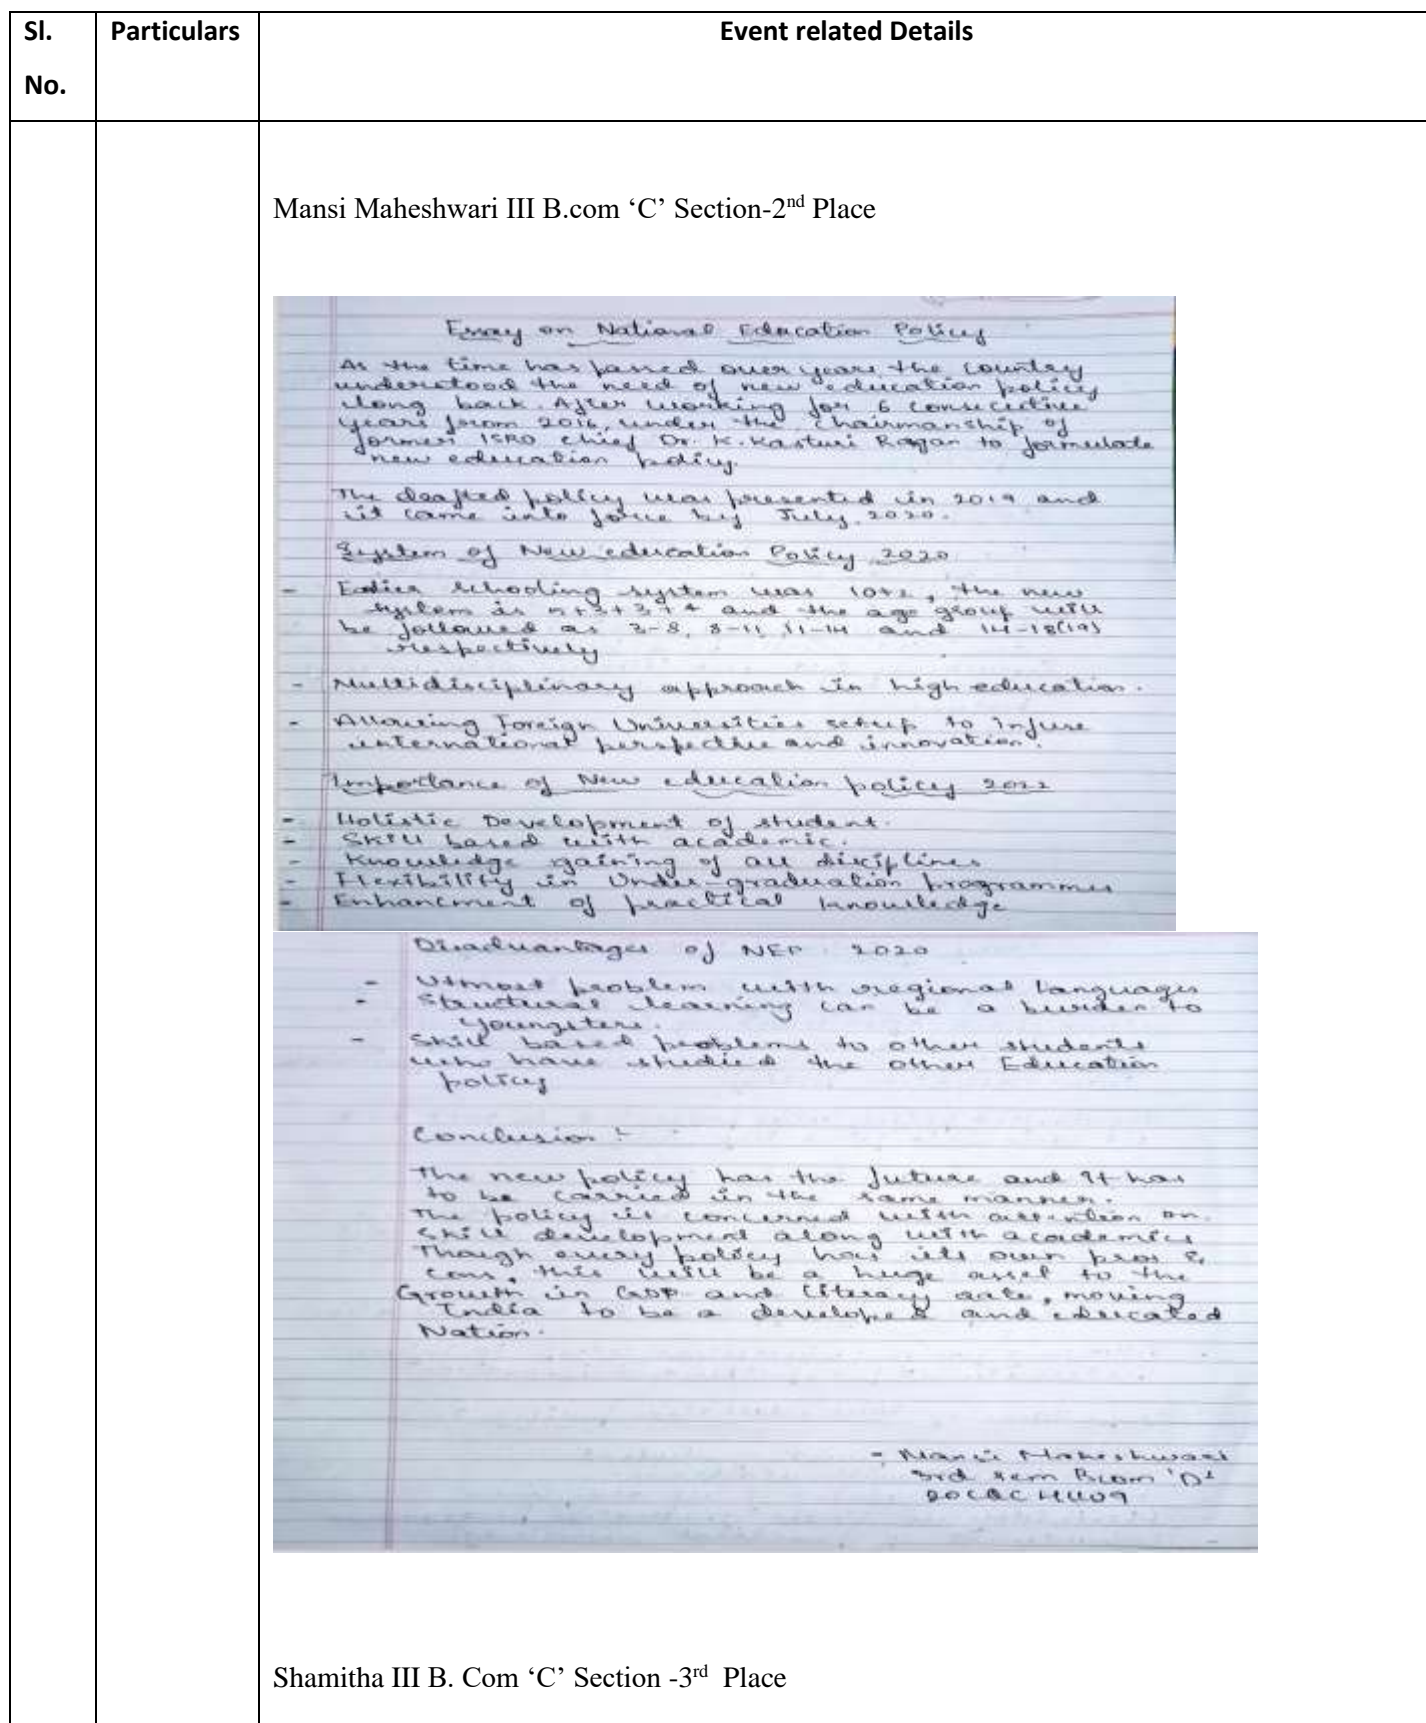 Sl. No.
Particulars
Event related Details
Mansi Maheshwari III B.com ‘C’ Section-2nd Place
Essay on National Education Policy
As the time has passed over years the country
understood the need of new education policy
long back. After working for 6 consecutive
years from 2016, under the chairmanship of
former ISRO chief Dr. K. Kasturi Ragan to formulate
new education policy.
The drafted policy was presented in 2019 and
it came into force by July, 2020.
System of New education Policy 2020
- Earlier schooling system was 10+2, the new
system is 5+3+3+4 and the age group will
be followed as 3-8, 8-11, 11-14 and 14-18(19)
respectively
- Multidisciplinary approach in high education.
- Allowing Foreign Universities setup to infuse
international perspective and innovation.
Importance of New education policy 2022
- Holistic Development of student.
- Skill based with academic.
- Knowledge gaining of all disciplines
- Flexibility in Under-graduation programmes
- Enhancment of practical knowledge
Disadvantages of NEP 2020
- Utmost problem with regional languages
- Structural learning can be a burden to
youngsters.
- Skill based problems to other students
who have studied the other Education
policy
Conclusion :-
The new policy has the future and it has
to be carried in the same manner.
The policy is concerned with attention on
skill development along with academics
Though every policy has its own pros &
cons, this will be a huge asset to the
Growth in GDP and literacy rate, moving
India to be a developed and educated
Nation.
- Mansi Maheshwari
3rd sem Bcom 'D'
Shamitha III B. Com ‘C’ Section -3rd Place